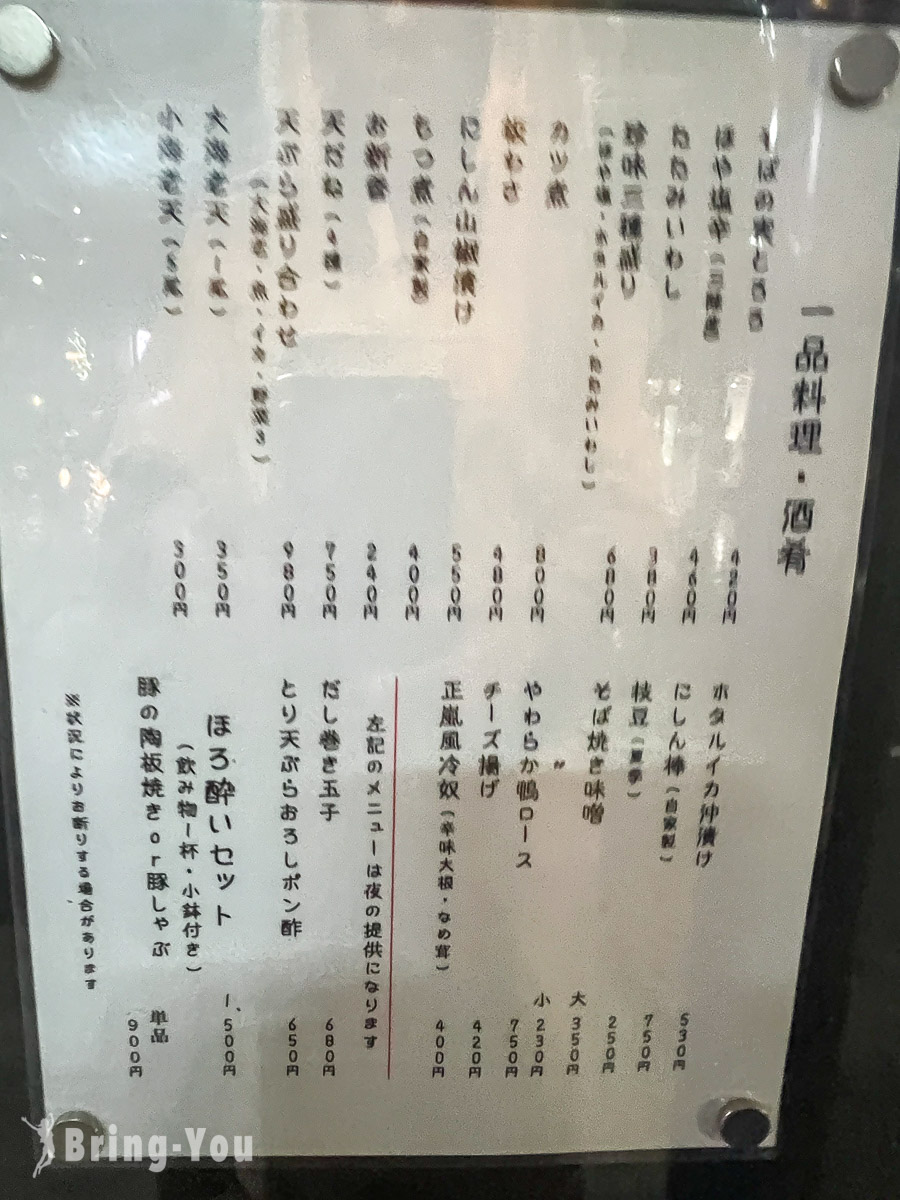 一品料理・酒肴
そばの実とろろ
ほや塩辛(三陸産) 460円
たたみいわし 380円
珍味三種盛り 680円
(ほや塩・ホタルイカ・たたみいわし)
カツ煮 800円
板わさ 480円
にしん山椒漬け 550円
もつ煮(自家製) 400円
お新香 240円
天だね(4種) 750円
天ぷら盛り合わせ 980円
(大海老・魚・イカ・野菜3)
大海老天(一尾) 350円
小海老天(3尾) 300円
ホタルイカ沖漬け 530円
にしん棒(自家製) 750円
枝豆(夏季) 250円
そば焼き味噌 大 350円
〃 小 230円
やわらか鴨ロース 750円
チーズ揚げ 420円
正嵐風冷奴(辛味大根・なめ茸) 400円
左記のメニューは夜の提供になります
だし巻き玉子 680円
とり天ぷらおろしポン酢 650円
ほろ酔いセット 1、500円
(飲み物一杯・小鉢付き)
豚の陶板焼きor豚しゃぶ 単品 900円
※状況によりお断りする場合があります
Bring-You